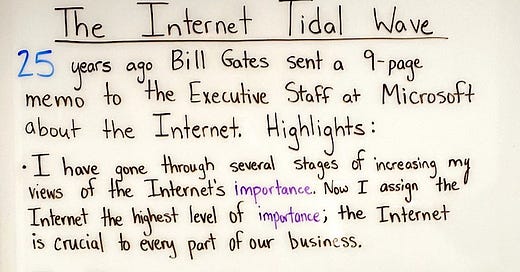 The Internet Tidal Wave
25 years ago Bill Gates sent a 9-page
memo to the Executive Staff at Microsoft
about the Internet. Highlights:
· I have gone through several stages of increasing my
views of the Internet's importance. Now I assign the
Internet the highest level of importance; the Internet
is crucial to every part of our business.